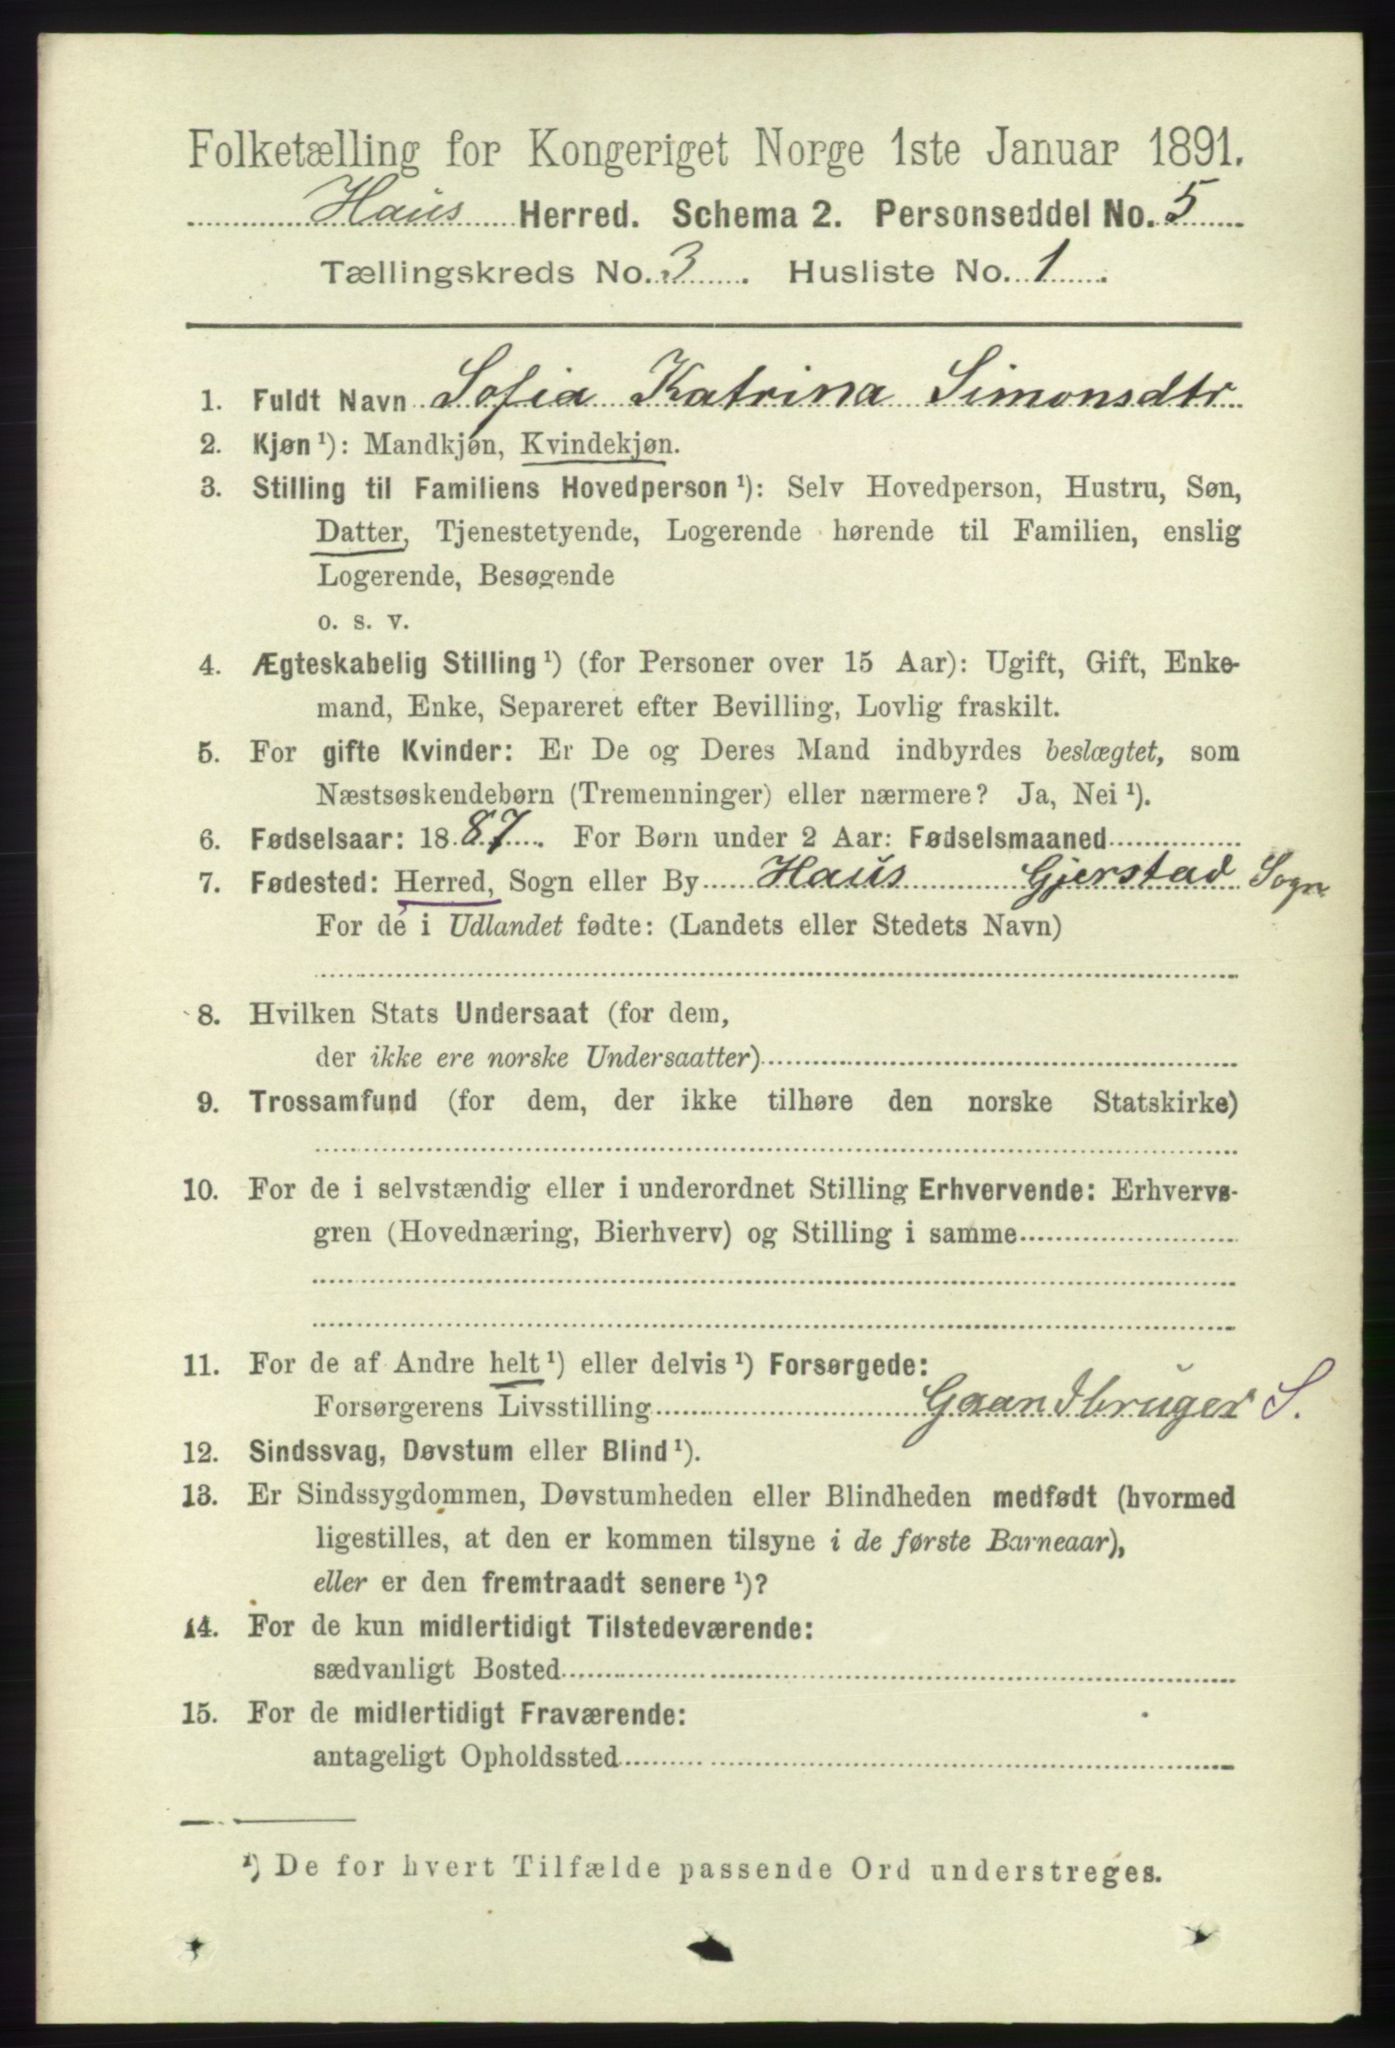 Folketælling for Kongeriget Norge 1ste Januar 1891.
Haus Herred. Schema 2. Personseddel No. 5
Tællingskreds No. 3. Husliste No. 1.
1. Fuldt Navn Sofia Katrina Simonsdtr
2. Kjøn ¹): Mandkjøn, Kvindekjøn.
3. Stilling til Familiens Hovedperson ¹): Selv Hovedperson, Hustru, Søn,
Datter, Tjenestetyende, Logerende hørende til Familien, enslig
Logerende, Besøgende
o. s. v.
4. Ægteskabelig Stilling ¹) (for Personer over 15 Aar): Ugift, Gift, Enke-
mand, Enke, Separeret efter Bevilling, Lovlig fraskilt.
5. For gifte Kvinder: Er De og Deres Mand indbyrdes beslægtet, som
Næstsøskendebørn (Tremenninger) eller nærmere? Ja, Nei ¹).
6. Fødselsaar: 1887. For Børn under 2 Aar: Fødselsmaaned
7. Fødested: Herred, Sogn eller By Haus Gjerstad Sogn
For de i Udlandet fødte: (Landets eller Stedets Navn)
8. Hvilken Stats Undersaat (for dem,
der ikke ere norske Undersaatter)
9. Trossamfund (for dem, der ikke tilhøre den norske Statskirke)
10. For de i selvstændig eller i underordnet Stilling Erhvervende: Erhvervs-
gren (Hovednæring, Bierhverv) og Stilling i samme
11. For de af Andre helt ¹) eller delvis ¹) Forsørgede:
Forsørgerens Livsstilling Gaardbruger S.
12. Sindssvag, Døvstum eller Blind ¹).
13. Er Sindssygdommen, Døvstumheden eller Blindheden medfødt (hvormed
ligestilles, at den er kommen tilsyne i de første Barneaar),
eller er den fremtraadt senere ¹)?
14. For de kun midlertidigt Tilstedeværende:
sædvanligt Bosted
15. For de midlertidigt Fraværende:
antageligt Opholdssted
¹) De for hvert Tilfælde passende Ord understreges.